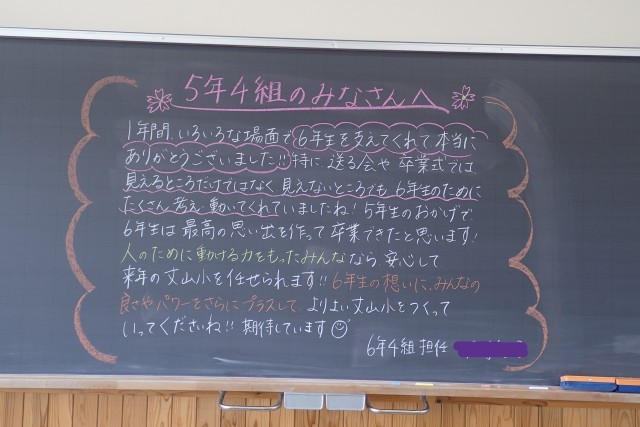 5年4組のみなさんへ
1年間、いろいろな場面で6年生を支えてくれて本当に
ありがとうございました!!特に送る会や卒業式では
見えるところだけではなく見えないところでも6年生のために
たくさん考え・動いてくれていましたね!5年生のおかげで
6年生は最高の思い出を作って卒業できたと思います!
人のために動ける力をもったみんななら安心して
来年の丈山小を任せられます!!6年生の想いに、みんなの
良さやパワーをさらにプラスして、よりよい丈山小をつくって
いってくださいね!!期待しています
6年4組担任